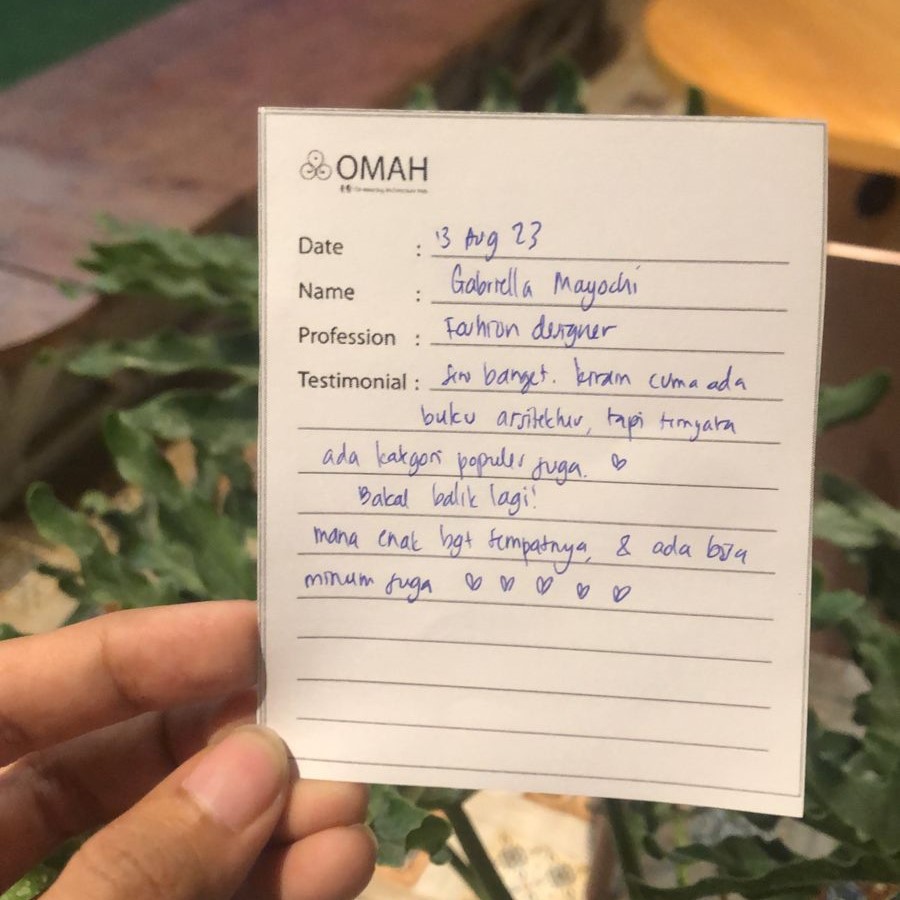 OMAH
Date : 13 Aug 23
Name : Gabriella Mayochi
Profession : Fashion designer
Testimonial : Seru banget. kiram cuma ada
buku arsitektur, tapi ternyata
ada kategori populer juga. ♡
Bakal balik lagi!
mana enak bgt tempatnya, & ada bisa
minum juga ♡ ♡ ♡ ♡ ♡